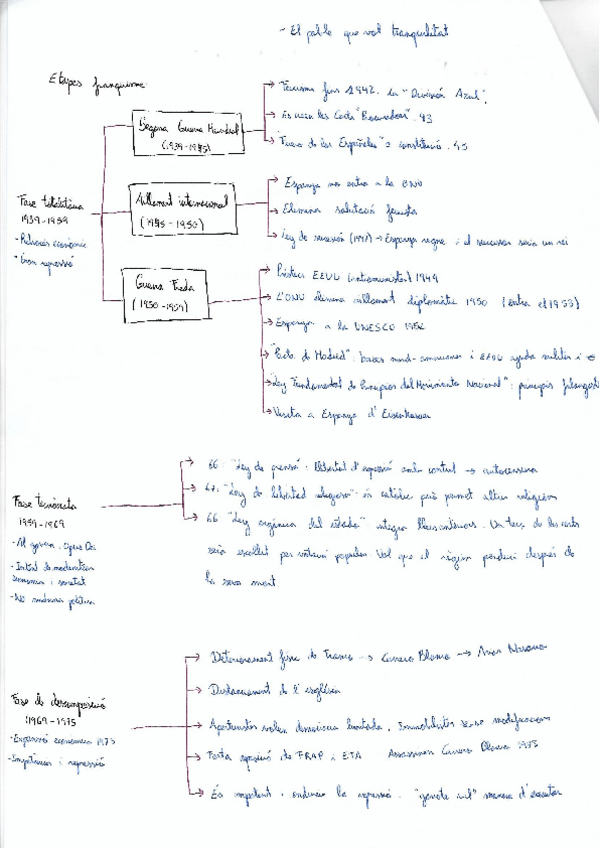 - El poble que vol tranquilitat
Etapes franquisme
Feixisme fins 1942. La "División Azul".
Segona Guerra Mundial
(1939-1945)
Es creen les Corts 43
"Fuero de los Españoles" constitució. 45
Fase totalitària
1939-1959
- Retrocés econòmic
- Gran repressió
Aïllament internacional
(1945-1950)
Espanya no entra a la ONU
Eliminar salutació feixista
Ley de sucesión (1947) → Espanya regne i el successor seria un rei
Guerra Freda
(1950-1959)
Préstec EEUU (anticomunistes) 1949
L'ONU elimina aïllament diplomàtic 1950 (entra el 1955)
Espanya a la UNESCO 1952
"Pacto de Madrid": bases nord-americanes i EEUU ajuda militar i
"Ley Fundamental de Principios del Movimiento Nacional": principis
Visita a Espanya d'Eisenhower
Fase tecnòcrata
1959-1969
- Al govern: Opus Dei
- Intent de modernitzar
economia i societat
- No política
66: "Ley de prensa": llibertat d'expressió amb control → autocensura
67: "Ley de libertad religiosa": és catòlic però permet altres religions
66 "Ley orgánica del estado" integra lleis anteriors. Un terç de les corts
serà escollit per votació popular. Vol que el règim perduri després de
la seva mort
Fase de descomposició
(1969-1975
- Expansió econòmica 1973
- Impotència i repressió
Deteriorament físic de Franco → Carrero Blanco → Arias Navarro
Distanciament de l'església
Aperturistes volen democràcia limitada. Immobilistes sense modificacions
Forta oposició de FRAP i ETA Assassinen Carrero Blanco 1973
És important: la repressió. "garrote vil" manera d'executar